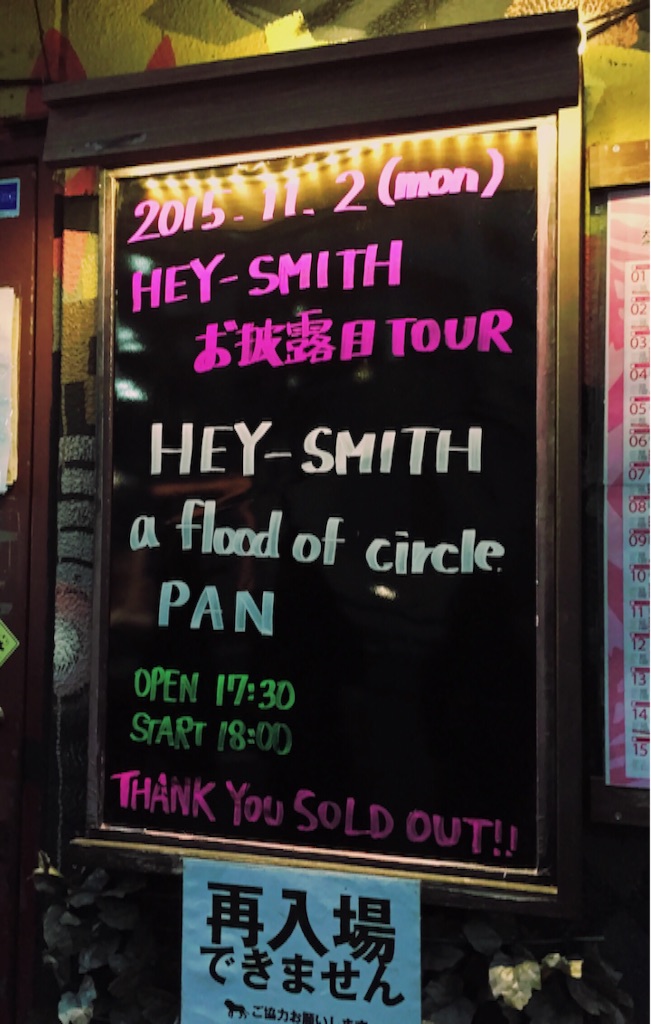 2015.11.2(mon)
HEY-SMITH
お披露目TOUR
HEY-SMITH
a flood of circle
PAN
OPEN 17:30
START 18:00
THANK YOU SOLD OUT!!
再入場
できません
ご協力お願いします
01
02
03
04
05
06
07
08
09
10
11
12
13
14
15